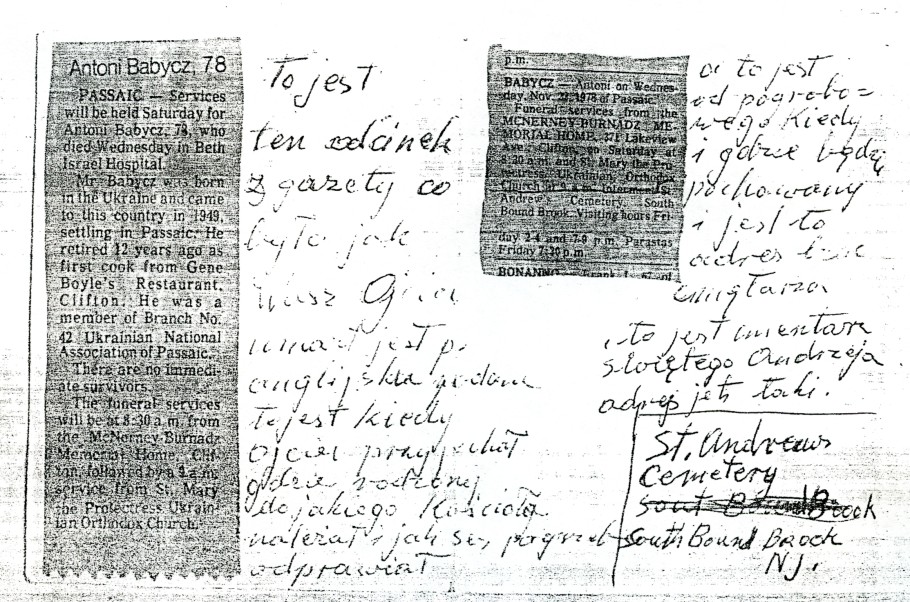 Antoni Babycz, 78
PASSAIC — Services
will be held Saturday for
Antoni Babycz, 78, who
died Wednesday in Beth
Israel Hospital.
Mr. Babycz was born
in the Ukraine and came
to this country in 1949,
settling in Passaic. He
retired 12 years ago as
first cook from Gene
Boyle's Restaurant,
Clifton. He was a
member of Branch No.
42 Ukrainian National
Association of Passaic.
There are no immedi-
ate survivors.
The funeral services
will be at 8:30 a.m. from
the McNerney-Burnadz
Memorial Home, Clif-
ton, followed by a 9 a.m.
service from St. Mary
the Protectress Ukrain-
ian Orthodox Church.
To jest
ten odcinek
z gazety co
było jak
Wasz Ojciec
umarł jest po
angielsku podane
to jest kiedy
ojciec przyjechał
gdzie rodzony
do jakiego Kościoła
należał i jak się pogrzeb
odprawiał
p.m.
BABYCZ — Antoni on Wednes-
day, Nov. 1978 of Passaic.
Funeral services from the
MCNERNEY-BURNADZ ME-
MORIAL HOME, Lakeview
Ave., Clifton, on Saturday at
8:30 a.m. and St. Mary the Pro-
tectress Ukrainian Orthodox
Church at 9 a.m. Interment St.
Andrew's Cemetery, South
Bound Brook. Visiting hours Fri-
day 2-4 and 7-9 p.m. Parastas
Friday 7:30 p.m.
a to jest
od pogrobo=
wego kiedy
i gdzie będzi
pochowany
i jest to
adres
cmętarza
i to jest cmentarz
świętego Andrzeja
adres jest taki.
St. Andrews
Cemetery
South Bound Brook
N.J.